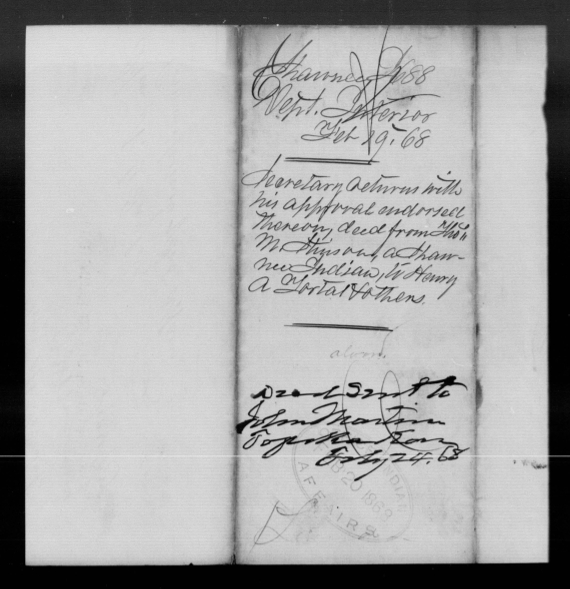 Shawnee I 688
Dept. Interior
Feb 19. 68
Secretary returns with
his approval endorsed
thereon, deed from Tho's
M. Stinson, a Shaw-
nee Indian, to Henry
A & others.
Deed sent to
John Martin
Topeka Kan
Feby 24. 68
INDIAN
FEB 20 1868
AFFAIRS